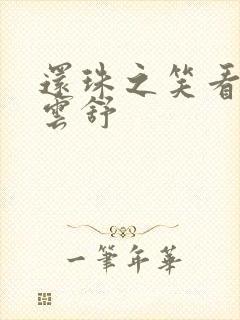 還珠之笑看
雲舒
一筆年華